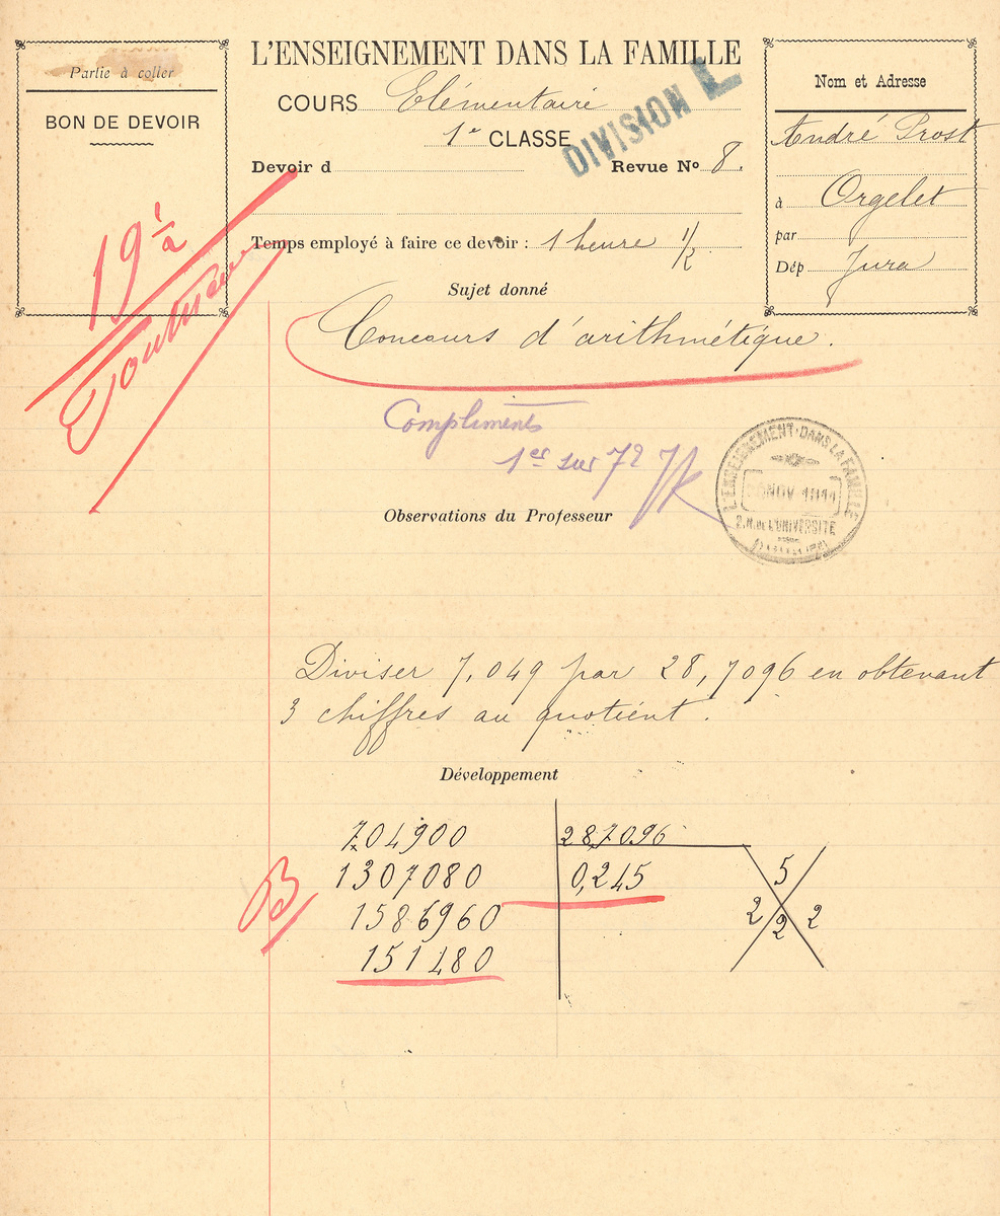 Partie à coller
BON DE DEVOIR
19 1/2
L'ENSEIGNEMENT DANS LA FAMILLE
COURS Elémentaire
1e CLASSE
DIVISION L
Devoir d
Revue No 8.
Temps employé à faire ce devoir : 1 heure 1/2
Nom et Adresse
André Prost
à Orgelet
par
Dép Jura
Sujet donné
Concours d'arithmétique.
Compliments
1er sur 72
L'ENSEIGNEMENT DANS LA FAMILLE
NOV 1911
2. R. DE L'UNIVERSITÉ
Observations du Professeur
Diviser 7,049 par 28,7096 en obtenant
3 chiffres au quotient.
Développement
704900 287096
1307080 0,245
1586960
151480
B
5
2 2
2